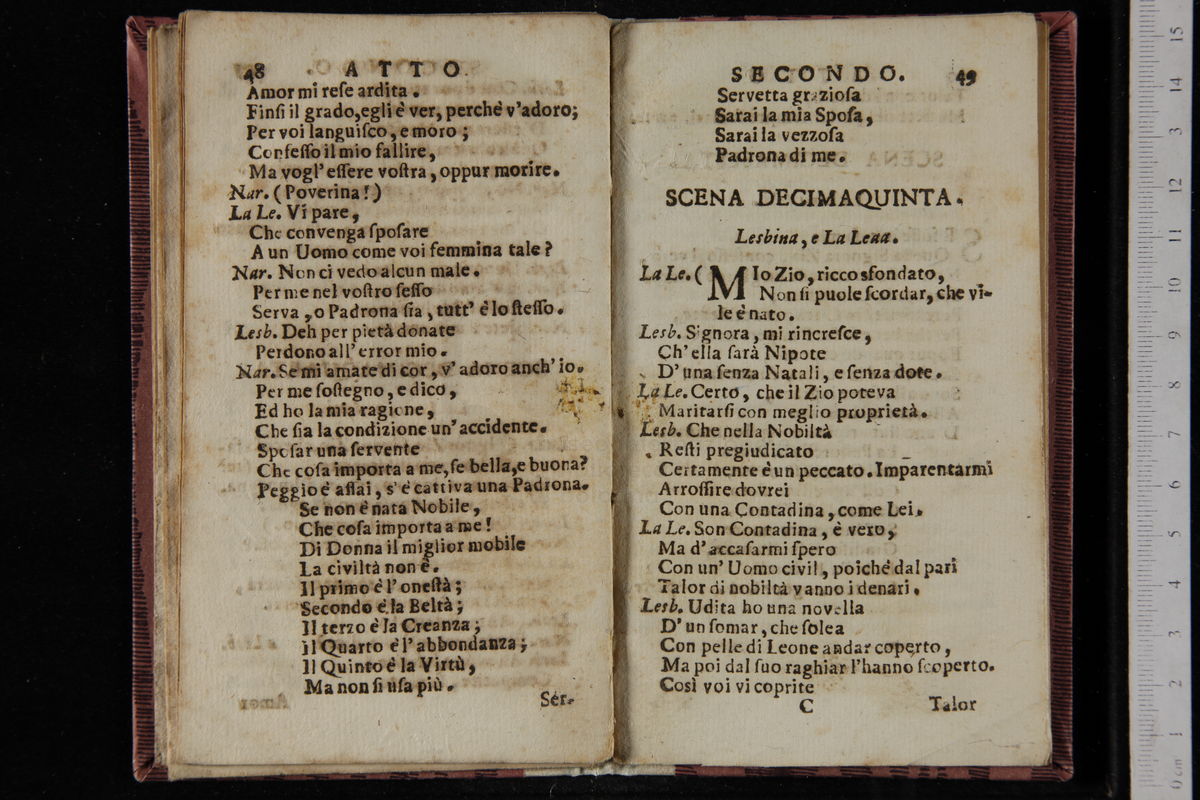 48 ATTO
Amor mi reſe ardita.
Finſi il grado, egli è ver, perchè v'adoro;
Per voi languiſco, e moro;
Confeſſo il mio fallire,
Ma vogl' eſſere voſtra, oppur morire.
Nar. (Poverina!)
La Le. Vi pare,
Che convenga ſpoſare
A un Uomo come voi femmina tale?
Nar. Non ci vedo alcun male.
Per me nel voſtro ſeſſo
Serva, o Padrona ſia, tutt' è lo ſteſſo.
Lesb. Deh per pietà donate
Perdono all' error mio.
Nar. Se mi amate di cor, v' adoro anch' io.
Per me ſoſtegno, e dico,
Ed ho la mia ragione,
Che ſia la condizione un' accidente.
Spoſar una ſervente
Che coſa importa a me, ſe bella, e buona?
Peggio è aſſai, s' è cattiva una Padrona.
Se non è nata Nobile,
Che coſa importa a me!
Di Donna il miglior mobile
La civiltà non è.
Il primo è l' oneſtà;
Secondo è la Beltà;
Il terzo è la Creanza;
il Quarto è l' abbondanza;
Il Quinto è la Virtù,
Ma non ſi uſa più.
Ser-
SECONDO. 49
Servetta grazioſa
Sarai la mia Spoſa,
Sarai la vezzoſa
Padrona di me.
SCENA DECIMAQUINTA.
Lesbina, e La Lena.
La Le. (MIo Zio, ricco sfondato,
Non ſi puole ſcordar, che vi-
le è nato.
Lesb. Signora, mi rincreſce,
Ch' ella ſarà Nipote
D' una ſenza Natali, e ſenza dote.
La Le. Certo, che il Zio poteva
Maritarſi con meglio proprietà.
Lesb. Che nella Nobiltà
Reſti pregiudicato
Certamente è un peccato. Imparentarmi
Arroſſire dovrei
Con una Contadina, come Lei.
La Le. Son Contadina, è vero,
Ma d' accaſarmi ſpero
Con un' Uomo civil, poichè dal pari
Talor di nobiltà vanno i denari.
Lesb. Udita ho una novella
D' un ſomar, che ſolea
Con pelle di Leone andar coperto,
Ma poi dal ſuo raghiar l'hanno ſcoperto.
Così voi vi coprite
C Talor